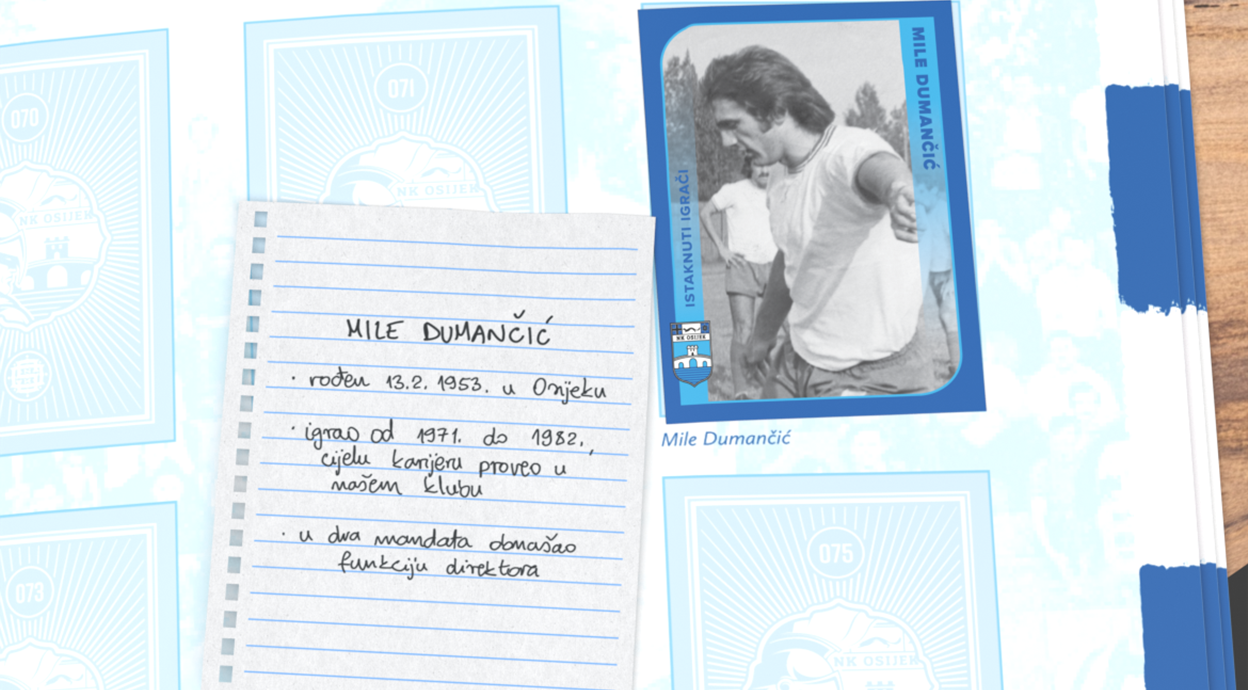 070
071
NK OSIJEK
MILE DUMANČIĆ
ISTAKNUTI IGRAČI
NK OSIJEK
MILE DUMANČIĆ
· rođen 13.2. 1953. u Osijeku
· igrao od 1971. do 1982,
cijelu karijeru proveo u
našem klubu
· u dva mandata obnašao
funkciju direktora
Mile Dumančić
073
075
NK OSIJEK